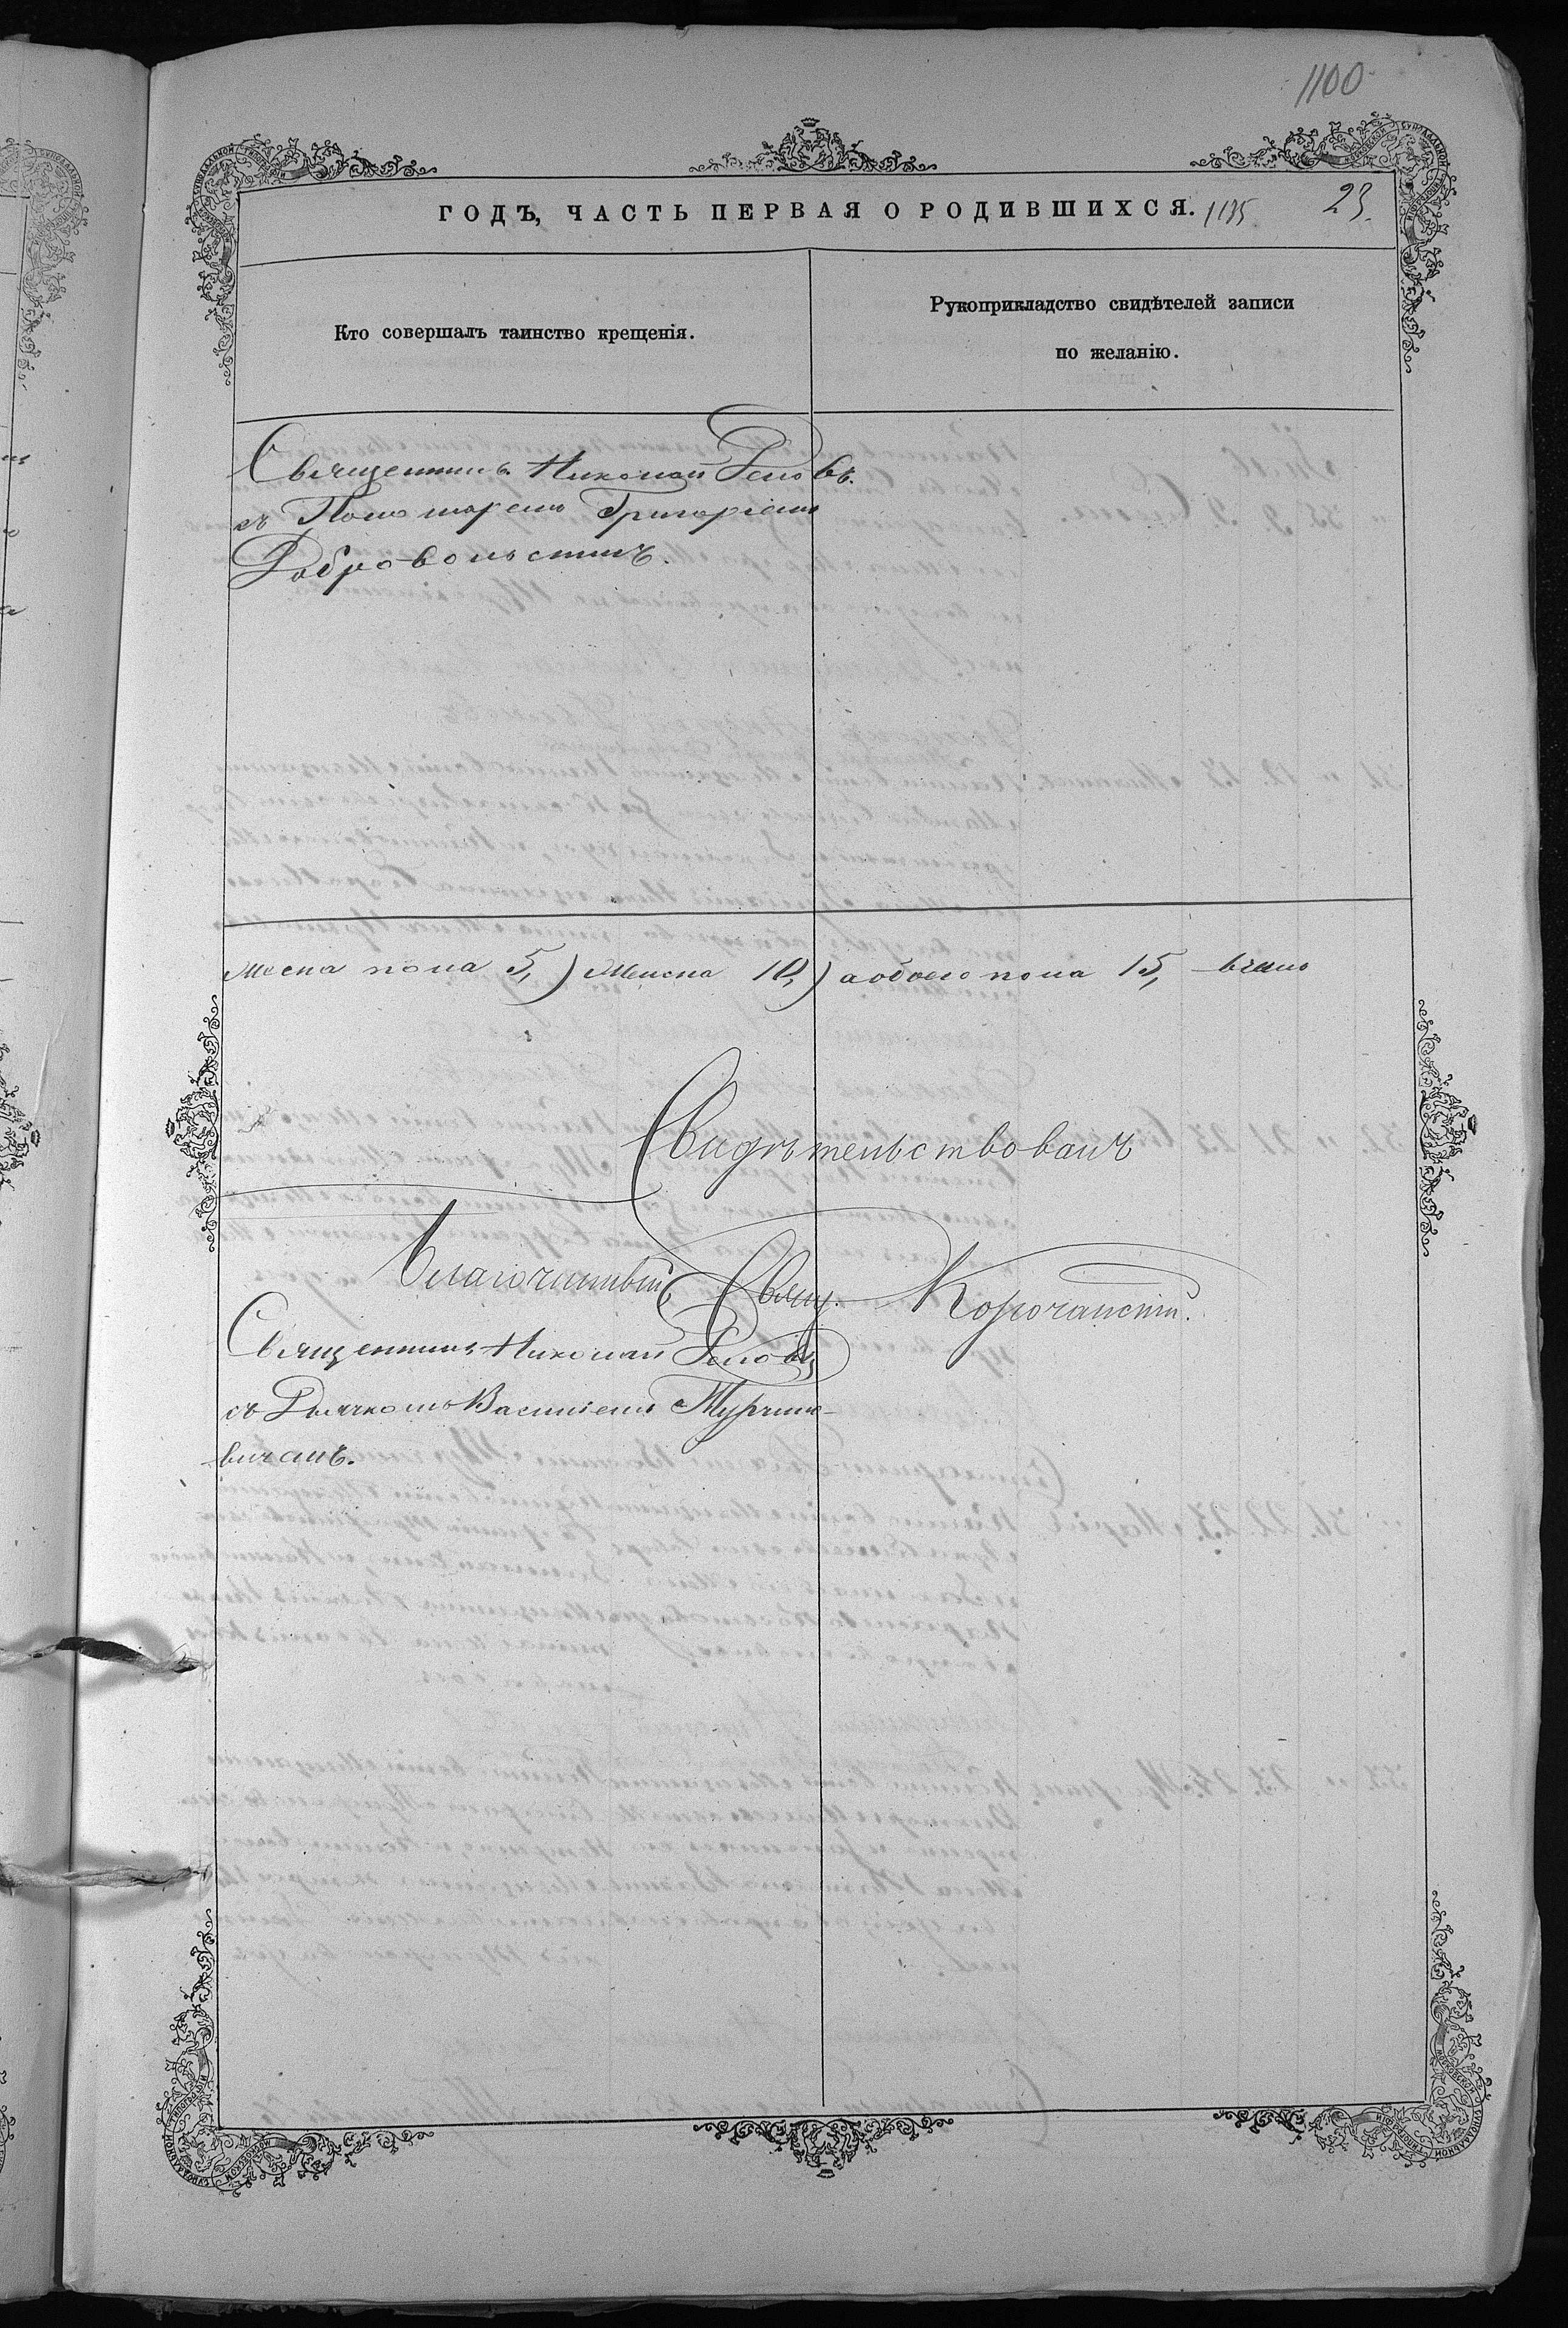 1100
ГОДЪ, ЧАСТЬ ПЕРВАЯ О РОДИВШИХСЯ. 1135 23.
Кто совершалъ таинство крещенія.
Рукоприкладство свидѣтелей записи
по желанію.
Священникъ Николай
съ Пономаремъ Григоріемъ
Добровольскимъ.
Мескa пола 5,) Женска 10,) а обоего пола 15,
Свидѣтельствовалъ
Благочинный Свящ. Корочанскій.
Священникъ Николай
съ Дьячкомъ Василіемъ
вичемъ.